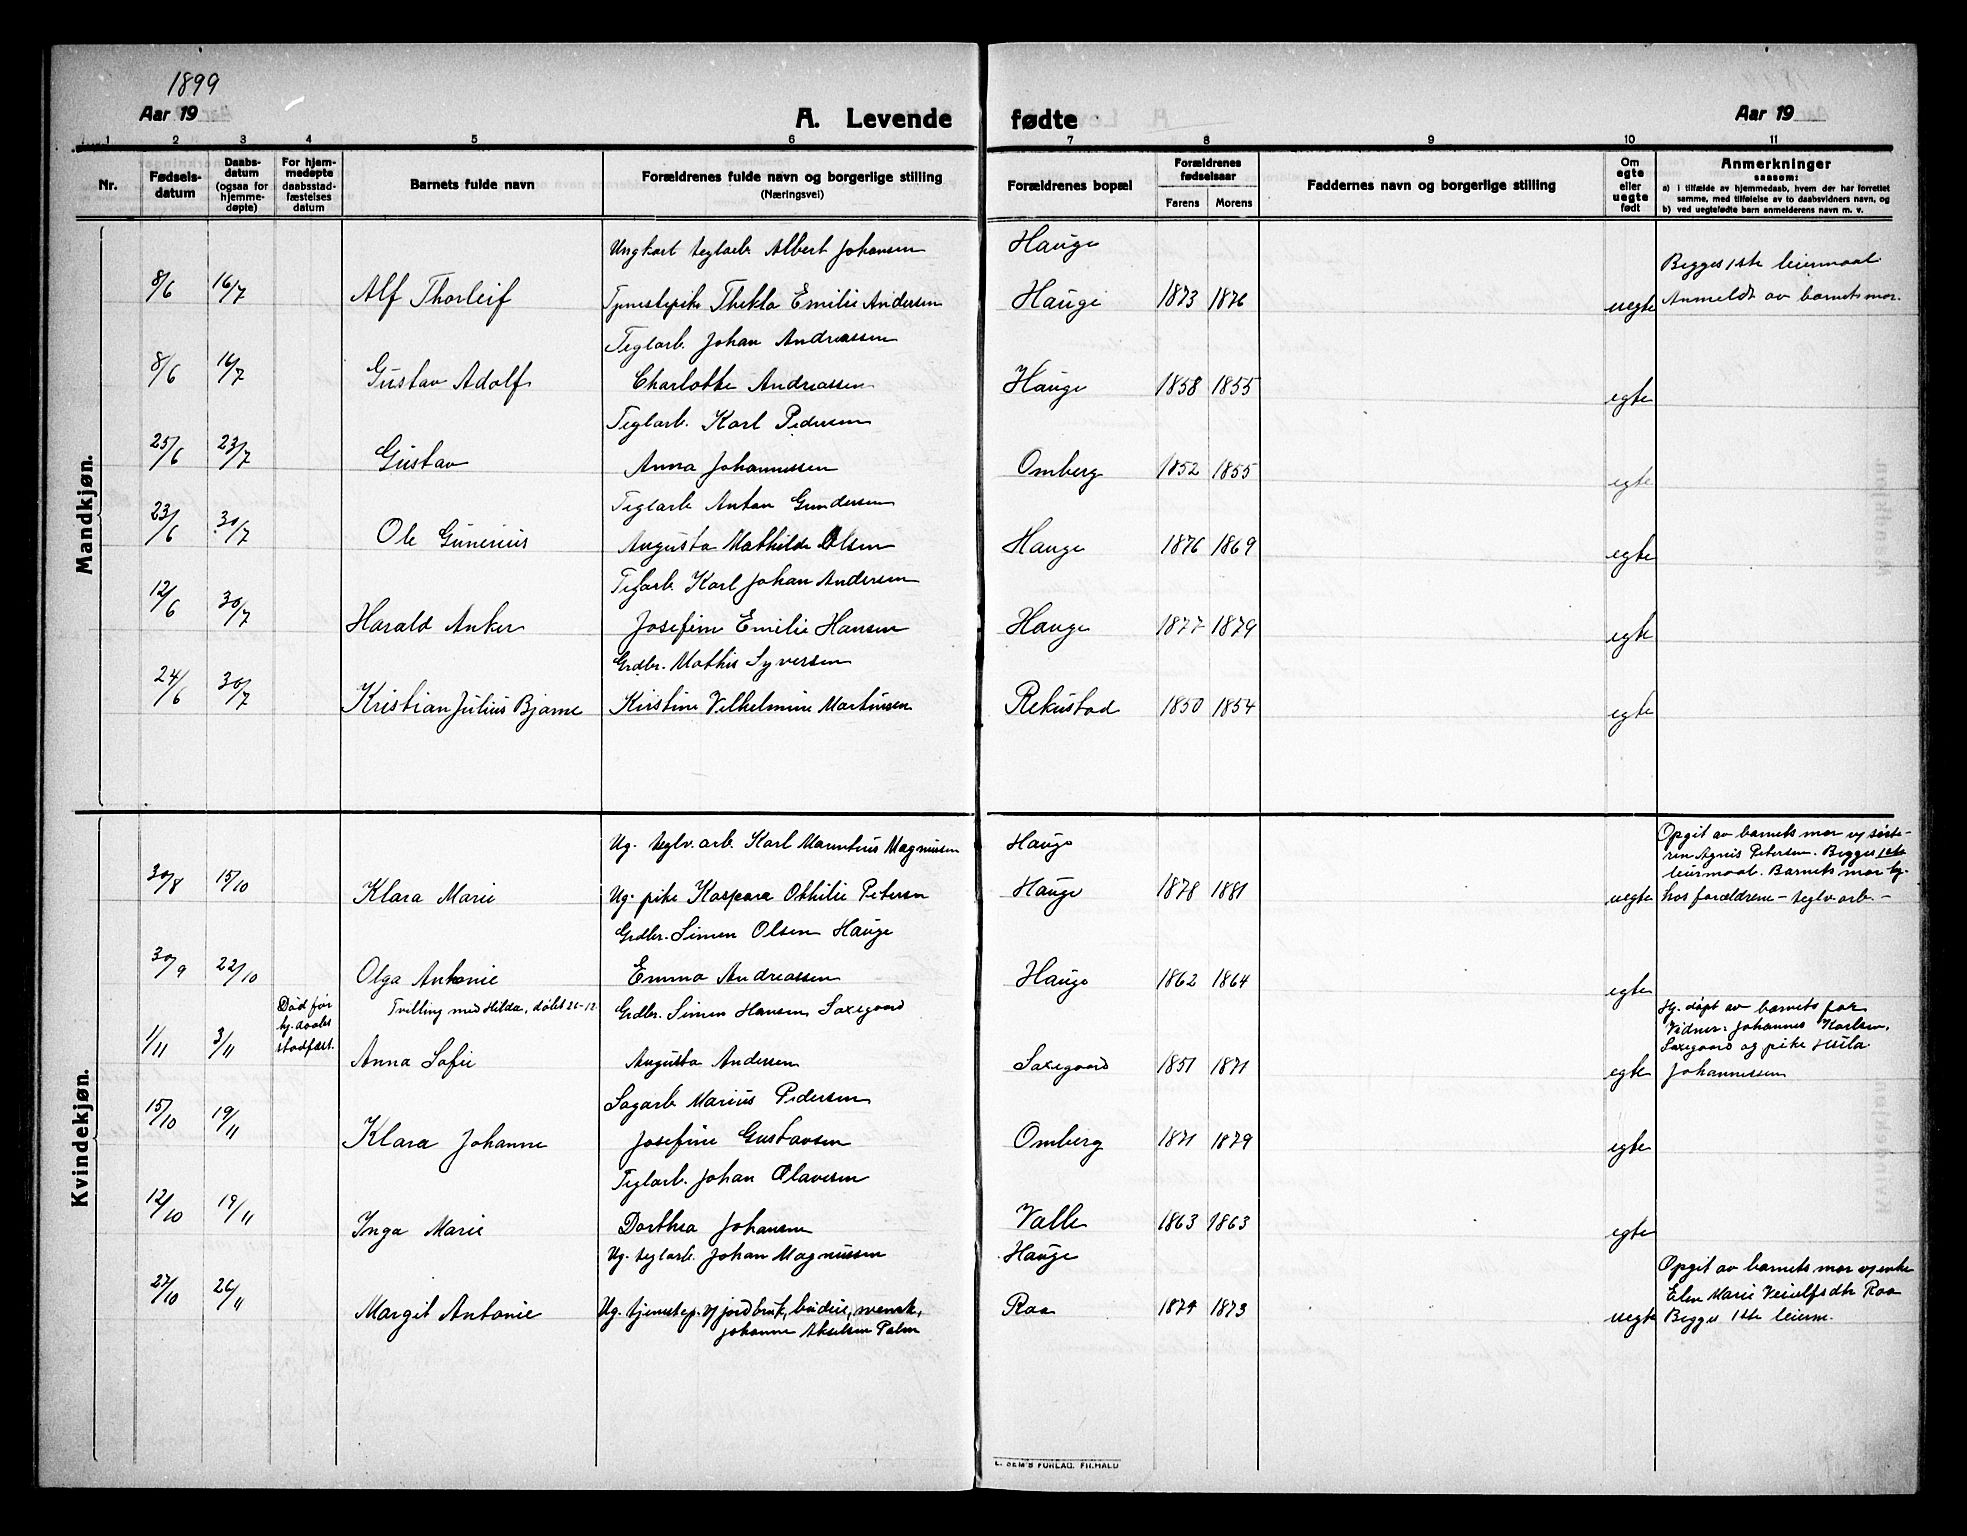 1899
Aar 19
A. Levende fødte
Aar 19
1 2 3 4 5 6 7 8 9 10 11
Nr.
Fødselsdatum
Daabsdatum (ogsaa for hjemmedøpte)
For hjemmedøpte daabsstadfæstelses datum
Barnets fulde navn
Forældrenes fulde navn og borgerlige stilling (Næringsvei)
Forældrenes bopæl
Forældrenes fødselsaar
Farens Morens
Faddernes navn og borgerlige stilling
Om egte eller uegte født
Anmerkninger
saasom:
a) i tilfælde av hjemmedaab, hvem der har forrettet samme, med tilføielse av to daabsvidners navn, og
b) ved uegtefødte barn anmelderens navn m. v.
Mandkjøn.
Ungkarl teglarb. Albert Johansen Hauge
8/6 16/7 Alf Thorleif Tjenestepike Thekla Emilie Andersen Hauge 1873 1876 uegte
Begges 1ste leiermaal.
Anmeldt av barnets mor.
Teglarb. Johan Andreassen
8/6 16/7 Gustav Adolf Charlotte Andreassen Hauge 1858 1855 egte
Teglarb. Karl Pedersen
25/6 23/7 Gustav Anna Johannessen Omberg 1852 1855 egte
Teglarb Anton Gundersen
23/6 30/7 Ole Gunerius Augusta Mathilde Olsen Hauge 1876 1869 egte
Teglarb. Karl Johan Andersen
12/6 30/7 Harald Anker Josefine Emilie Hansen Hauge 1877 1879 egte
Grdbr. Mathis Syversen
24/6 30/7 Kristian Julius Bjarne Kirstine Vilhelmine Martinsen Rekustad 1850 1854 egte
Kvindekjøn.
Ug. teglv. arb. Karl Mauritius Magnussen Hauge
30/8 15/10 Klara Marie Ug. pike Kaspara Othilie Petersen Hauge 1878 1881 uegte
Opgit av barnets mor og søsteren Agnes Petersen. Begges 1ste
leiermaal. Barnets mor hj.
hos forældrene - teglv. arb. -
Grdbr. Simen Olsen Hauge
30/9 22/10 Olga Antonie Emma Andreassen Hauge 1862 1864 egte
Død før hj. daabs stadfæst.
Tvilling med Hilda, døbt 26-12. Grdbr. Simen Hansen Saxegaard
1/11 3/11 Anna Sofie Augusta Andersen Saxegaard 1851 1871 egte
Hj. døpt av barnets far
Vidner: Johannes Karlsen,
Saxegaard og pike Hula
Johannessen
Sagarb Marius Pedersen
15/10 19/11 Klara Johanne Josefine Gustavsen Omberg 1871 1879 egte
Teglarb. Johan Olavesen
12/10 19/11 Inga Marie Dorthea Johansen Valle 1863 1863 egte
Ug. teglarb. Johan Magnussen Hauge
27/10 26/11 Margit Antonie Ug. tjenestep. v/ jordbruk, budeie, svensk, Raa 1874 1873 uegte
Johanne Akselsen Palm
Opgit av barnets mor og enke
Elen Marie Raa
Begges 1ste leierm.
E. SEM'S FORLAG. FR.HALD